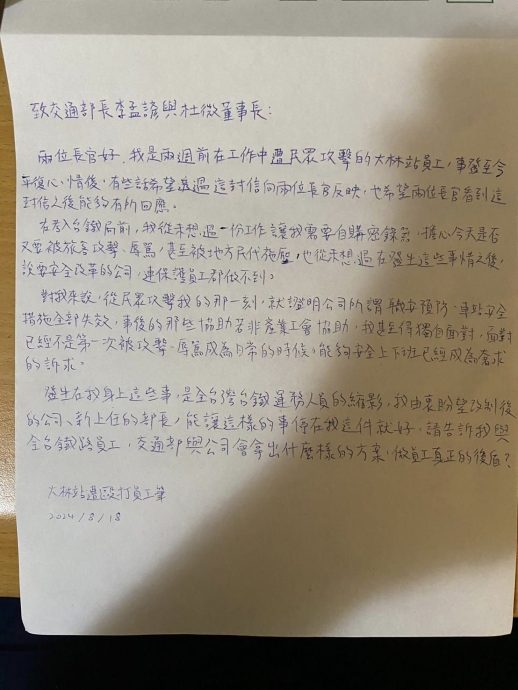 致交通部長李孟諺與杜微董事長：
兩位長官好，我是兩週前在工作中遭民眾攻擊的大林站員工，事發至今
平復心情後，有些話希望透過這封信向兩位長官反映，也希望兩位長官看到這
封信之後能夠有所回應。
在考入台鐵局前，我從未想過一份工作讓我需要自購密錄器，擔心今天是否
又要被旅客攻擊、辱罵，甚至被地方民代施壓，也從未想過在發生這些事情之後，
說要安全改革的公司，連保護員工都做不到。
對我來說，從民眾攻擊我的那一刻，就證明公司所謂職安預防、車站安全
措施全部失效，事後的那些協助若非產業工會協助，我甚至得獨自面對，面對
已經不是第一次被攻擊、辱罵成為日常的時候，能夠安全上下班已經成為奢求
的訴求。
發生在我身上這些事，是全台灣台鐵運務人員的縮影，我由衷盼望改制後
的公司、新上任的部長，能讓這樣的事停在我這件就好，請告訴我與
全台鐵路員工，交通部與公司會拿出什麼樣的方案，做員工真正的後盾？
大林站遭毆打員工筆
2024/8/18